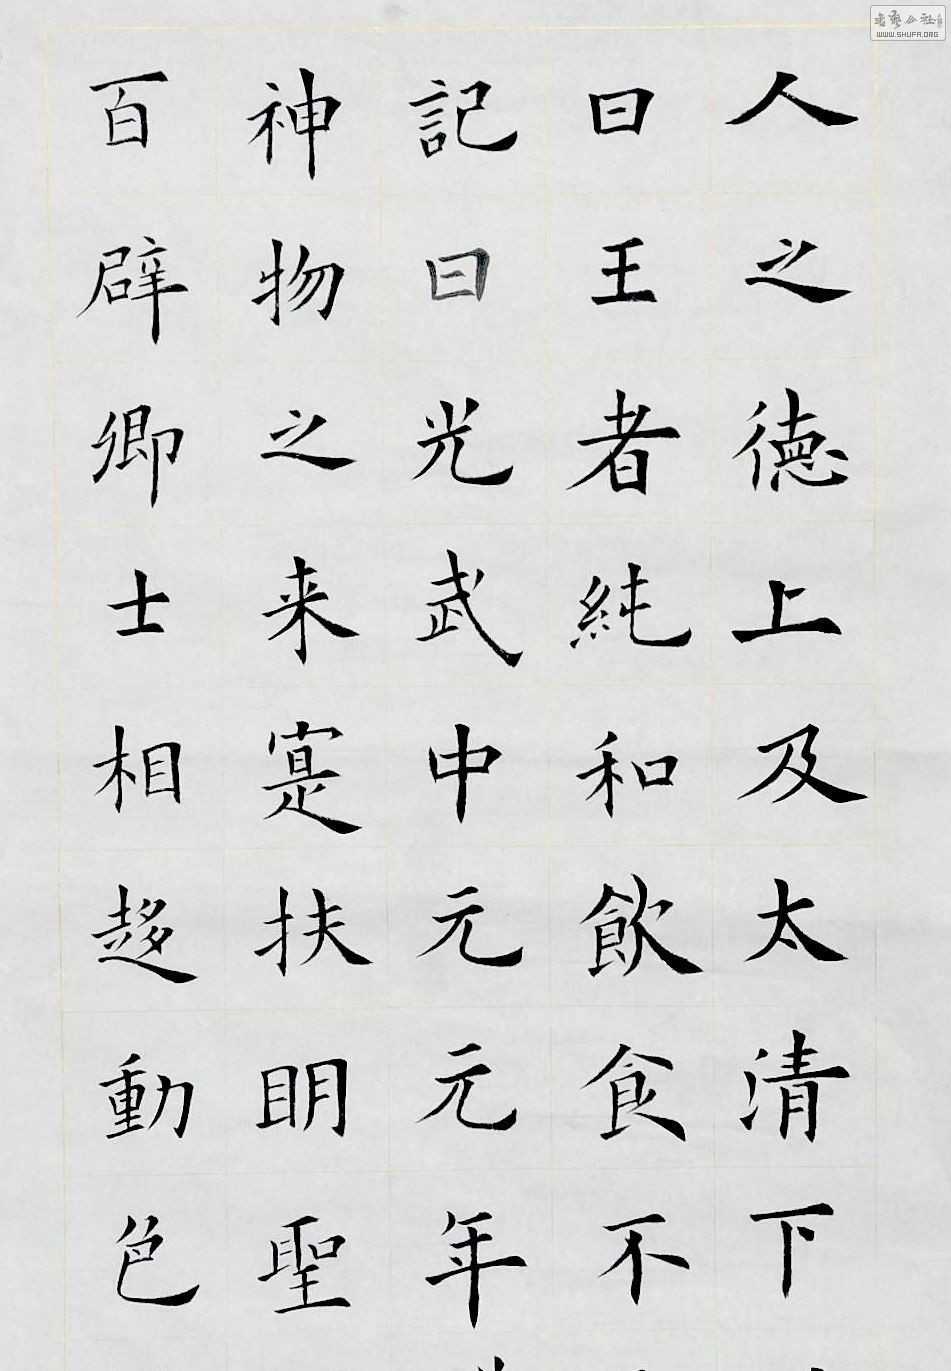 人之德上及太清下
曰王者純和飲食不
記曰光武中元元年
神物之来寔扶明聖
百辟卿士相趍動色
書藝公社
WWW.SHUFA.ORG